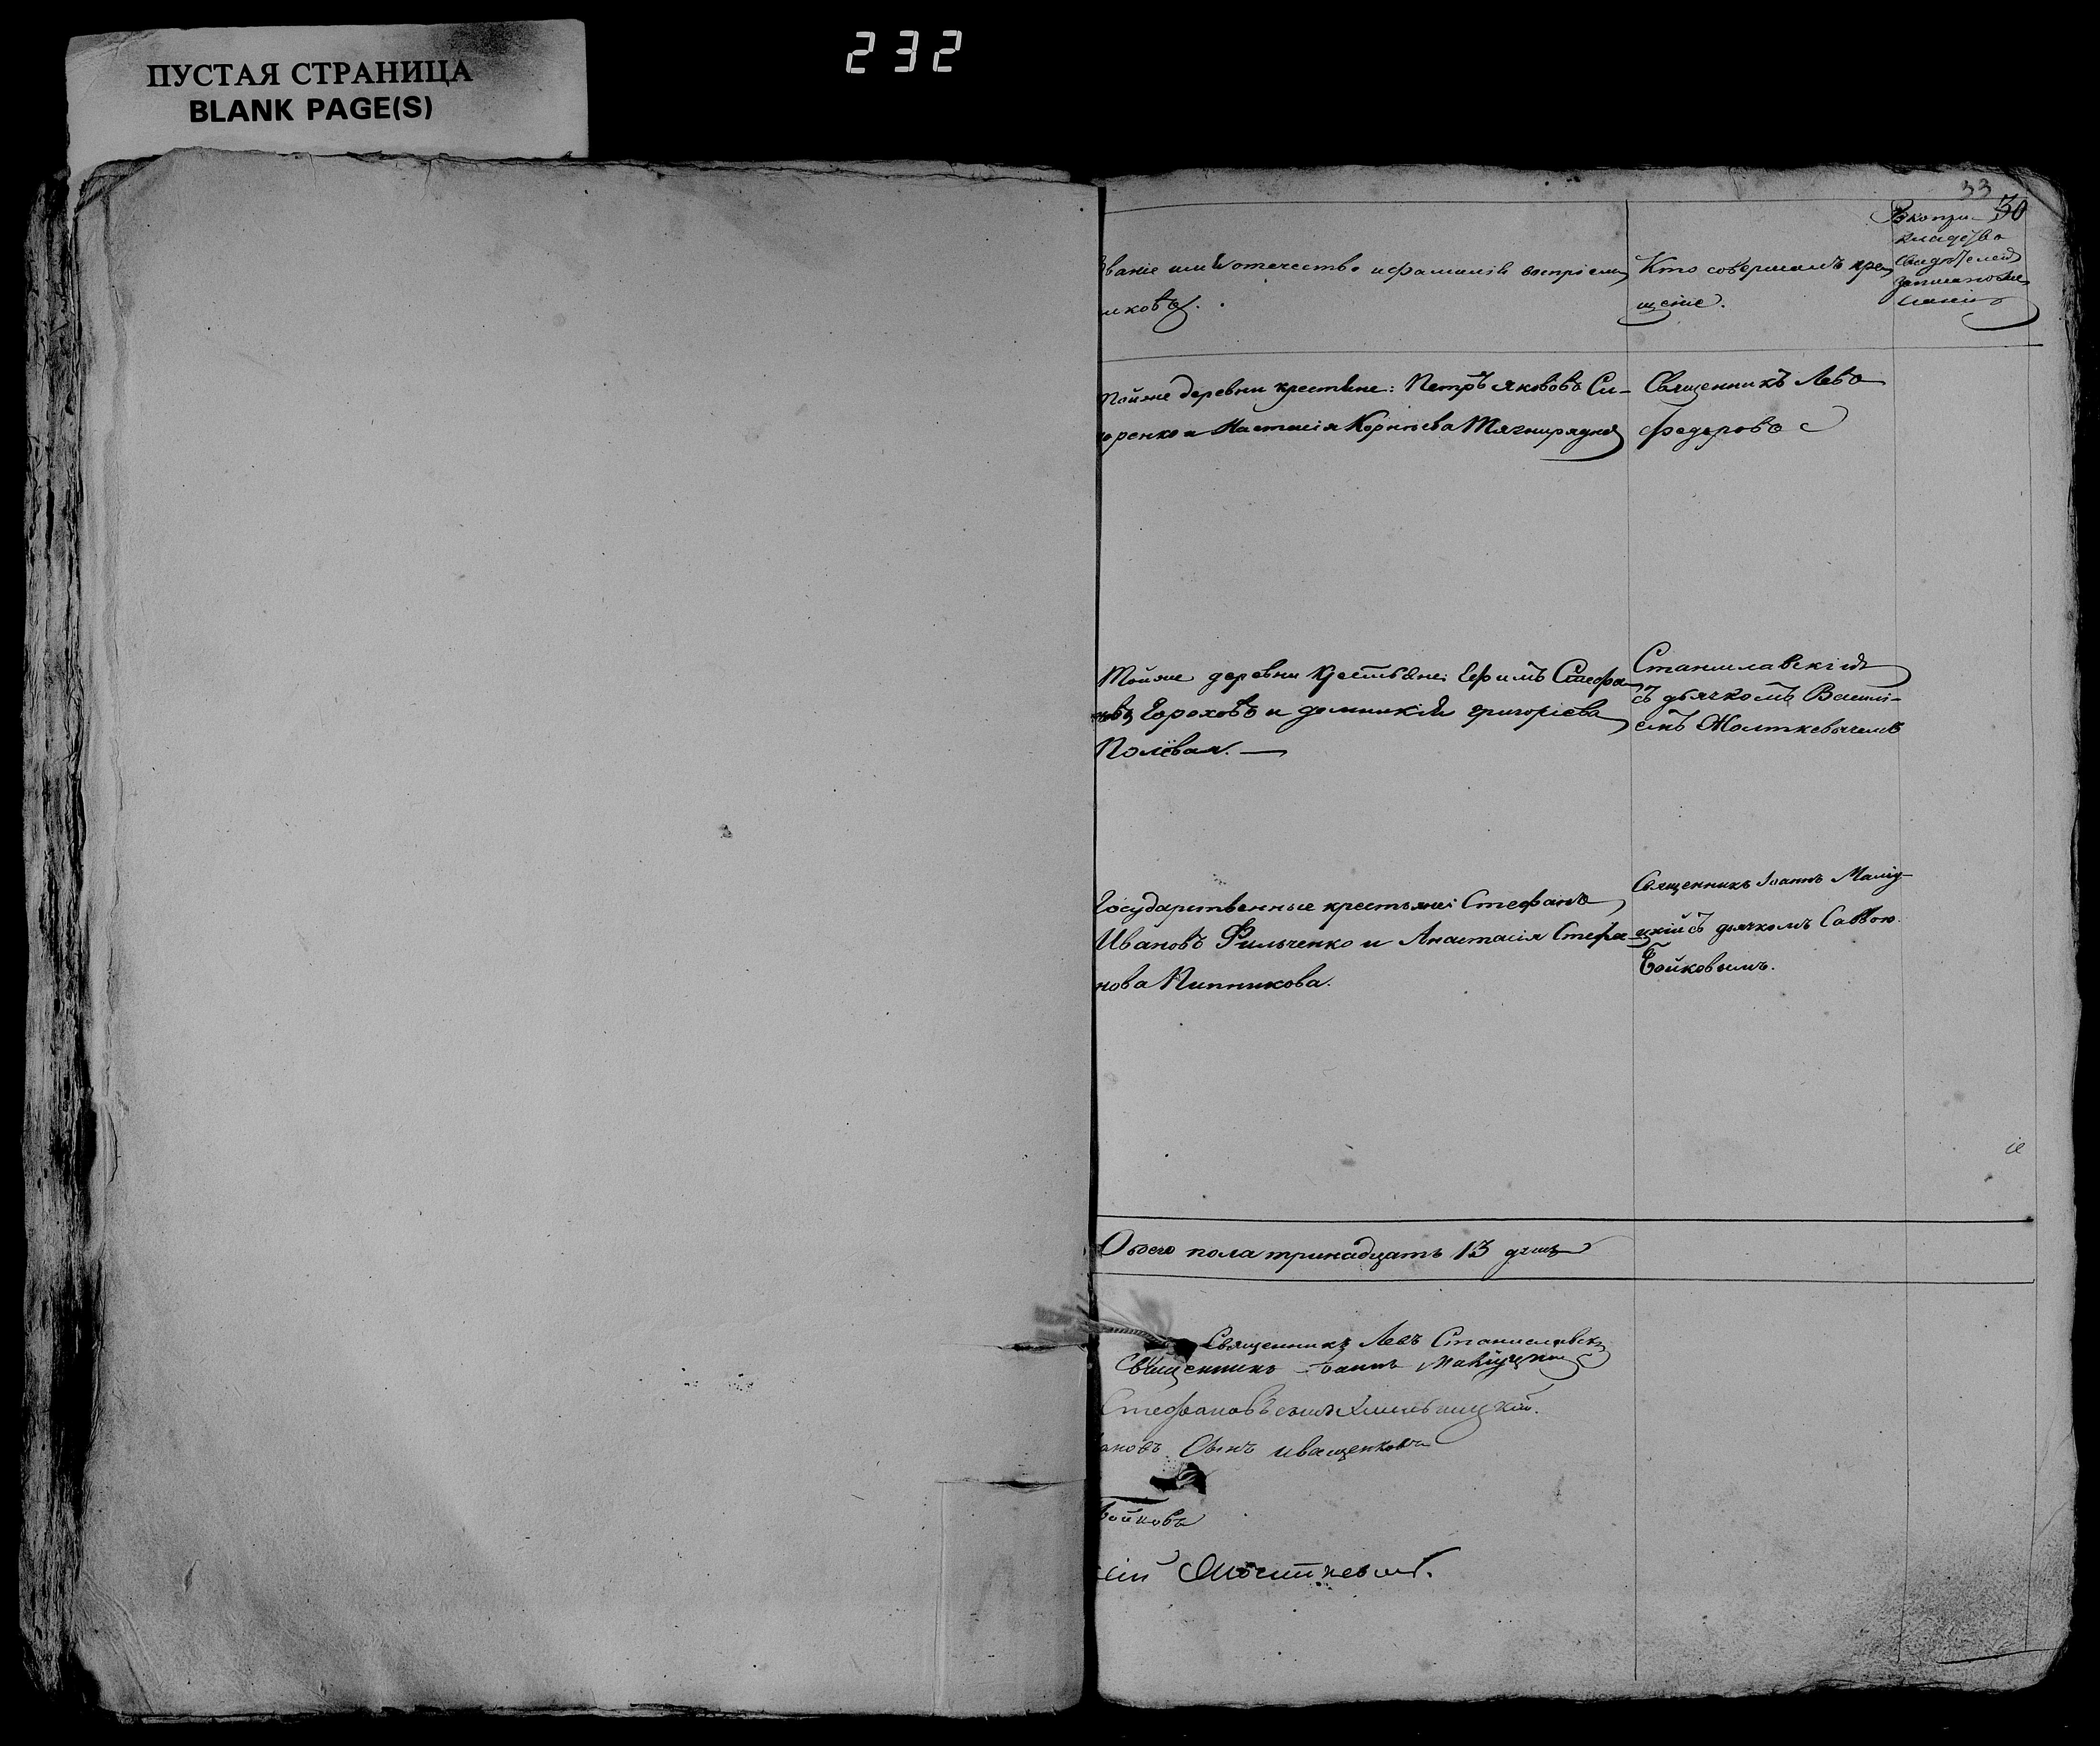 232
ПУСТАЯ СТРАНИЦА
BLANK PAGE(S)
33
30
Званіе имя отечество и фамилія воспріем
никовъ.
Кто совершалъ кре
щеніе.
свидѣтелей
Тойже деревни крестьяне: Петръ Якововъ Си-
доренко и Настасія Корнѣева
Священникъ Левъ
Федоровъ
Тойже деревни крестьяне: Ефимъ Стефа
новъ Гороховъ и Домникія Григоріева
Полевая. —
Станиславскій
съ дьячкомъ Василі-
емъ
Государственные крестьяне: Стефанъ
Ивановъ Фильченко и Анастасія Стефа
нова Пипникова.
Священникъ Іоаннъ
цкій съ дьячкомъ Саввою
Бойковымъ.
Обоего пола тринадцать 13 душъ
Священникъ Левъ Станиславск
Священникъ Іоаннъ
Стефановъ сынъ
ановъ Сынъ Иващенковъ
Бойковъ
сій